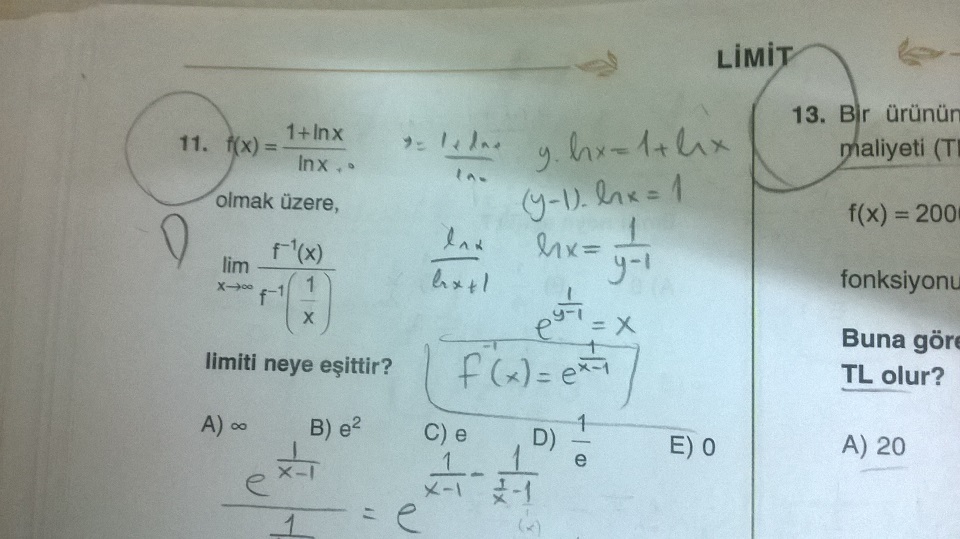 LİMİT
11. f(x) = 1+lnx / lnx
olmak üzere,
lim x→∞ f⁻¹(x) / f⁻¹(1/x)
limiti neye eşittir?
A) ∞ B) e² C) e D) 1/e E) 0
y. lnx = 1 + lnx
(y-1). lnx = 1
lnx = 1/(y-1)
lnx / lnx+1
e^(1/(y-1)) = x
f⁻¹(x) = e^(1/(x-1))
e^(1/(x-1)) / 1 = e^(1/(x-1) - 1/(1/x - 1))
(x)
13. Bir ürünün
maliyeti (TL
f(x) = 200
fonksiyonu
Buna göre
TL olur?
A) 20